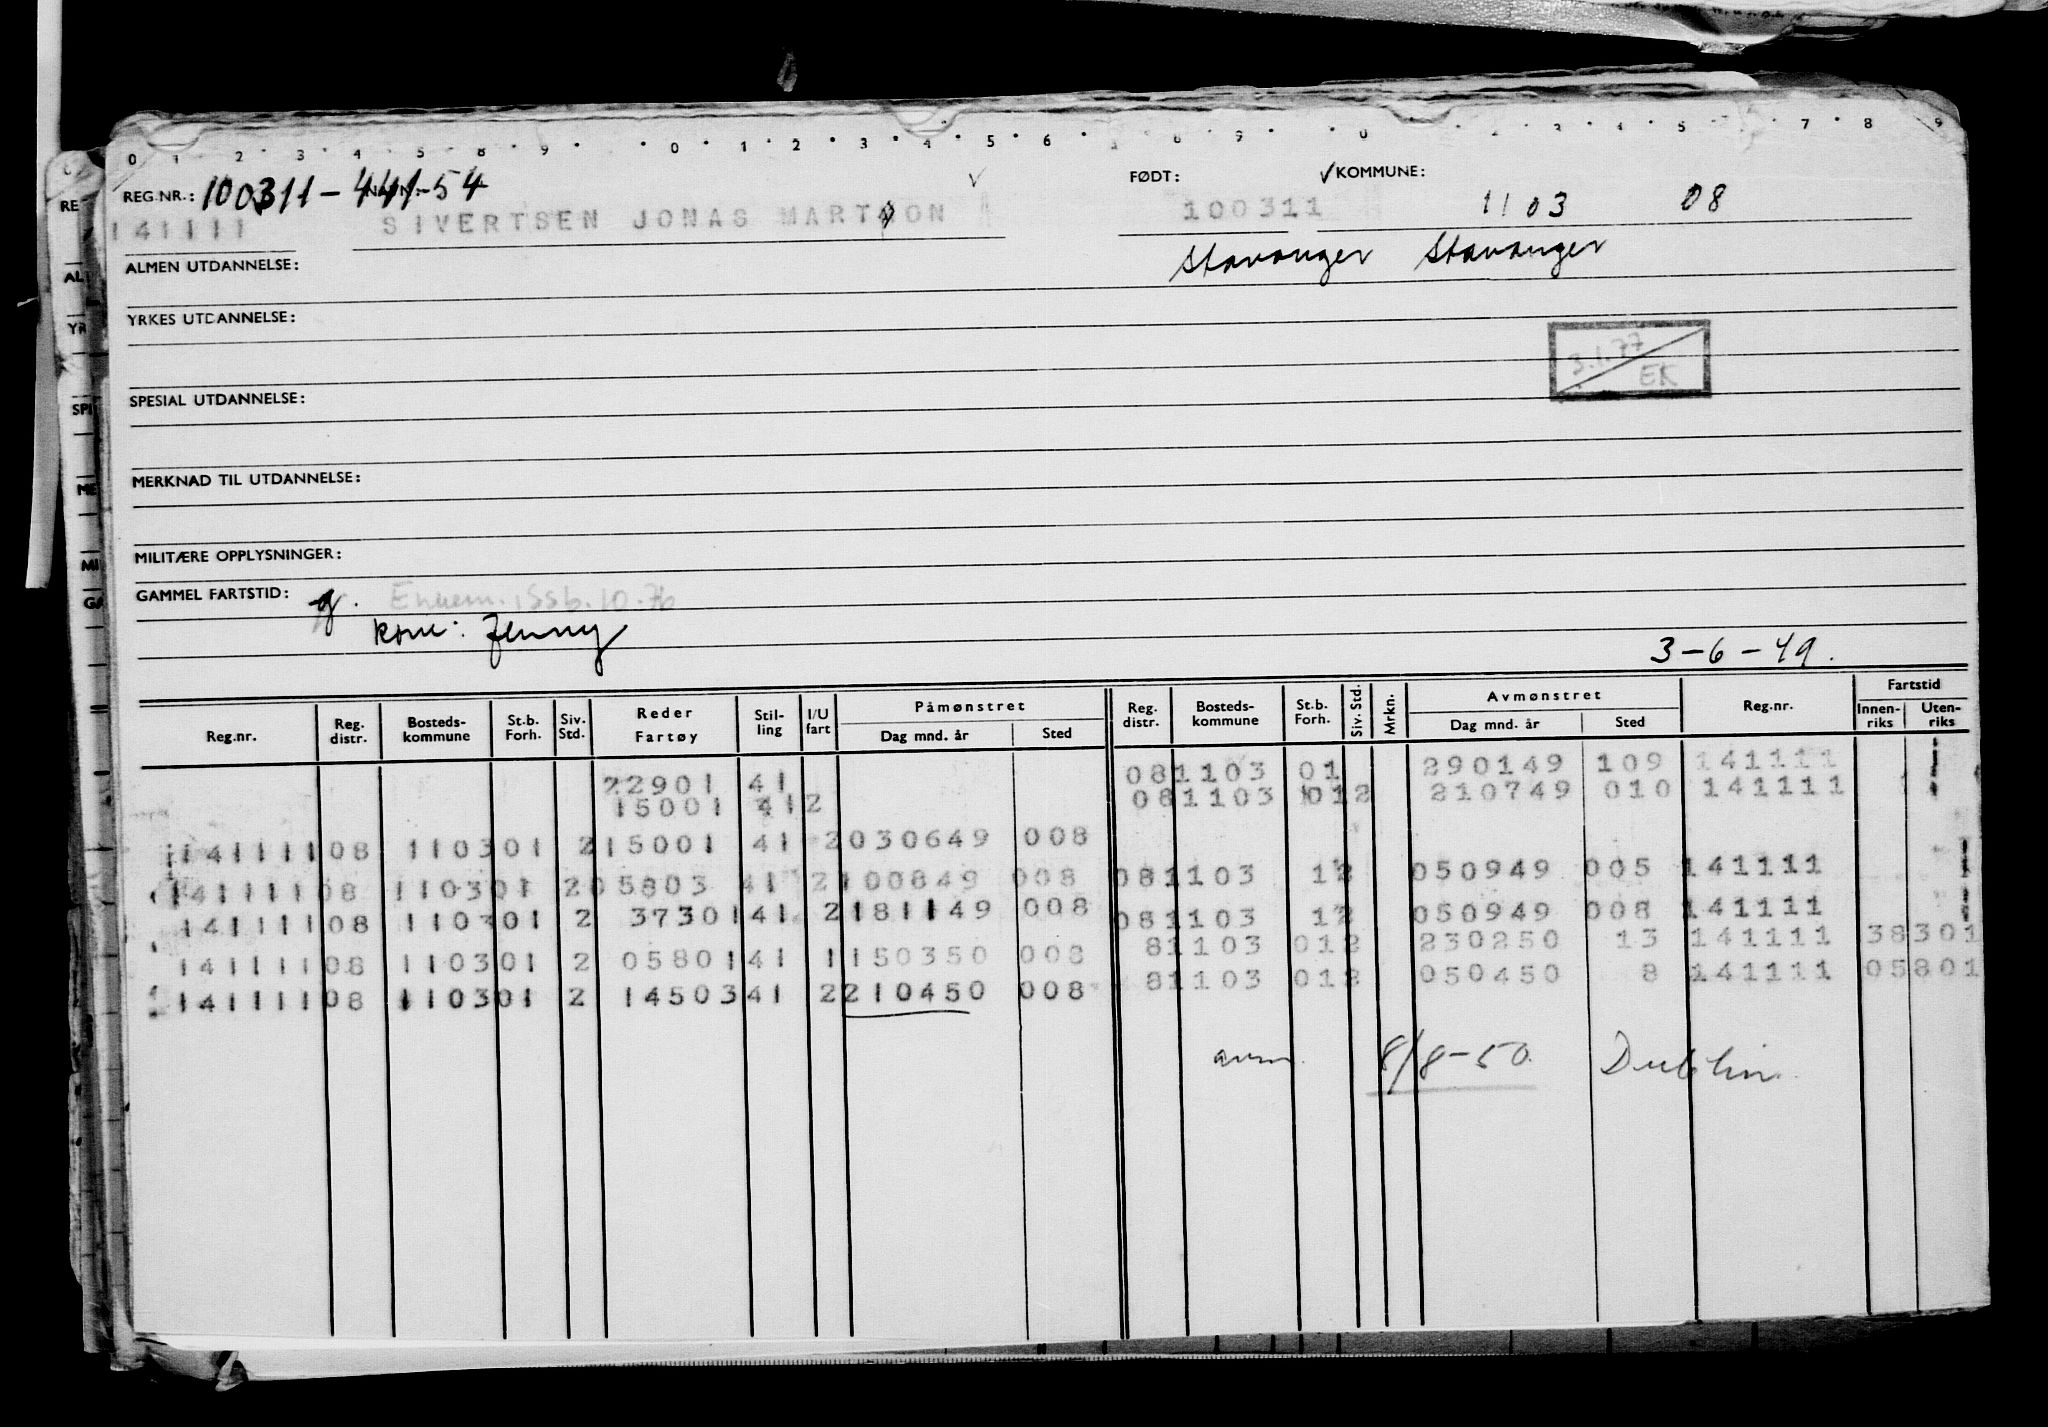 REG.NR.: 100311-441-54 FØDT: KOMMUNE:
141111 SIVERTSEN JONAS MARTON 100311 1103 08
Stavanger Stavanger
ALMEN UTDANNELSE:
YRKES UTDANNELSE:
3.1.77
EK
SPESIAL UTDANNELSE:
MERKNAD TIL UTDANNELSE:
MILITÆRE OPPLYSNINGER:
GAMMEL FARTSTID: g.
kone: Jenny
3-6-49.
Reg.nr. Reg. distr. Bosteds-kommune St.b. Forh. Siv. Std. Reder Fartøy Stil-ling I/U fart Påmønstret Dag mnd. år Sted Reg. distr. Bosteds-kommune St.b. Forh. Siv. Std. Mrkn. Avmønstret Dag mnd. år Sted Reg.nr. Fartstid Innen-riks Uten-riks
22901 41 081103 01 290149 109 141111
15001 412 081103 012 210749 010 141111
14111108 110301 215001 41 2030649 008
14111108 110301 205803 41 2100849 008 081103 12 050949 005 141111
14111108 110301 2 3730141 2181149 008 081103 12 050949 008 141111
81103 012 230250 13 141111 38301
14111108 110301 2 0580141 1150350 008
81103 012 050450 8 141111 05801
14111108 110301 2 1450341 2210450 008
avm. 8/8-50. Dublin.